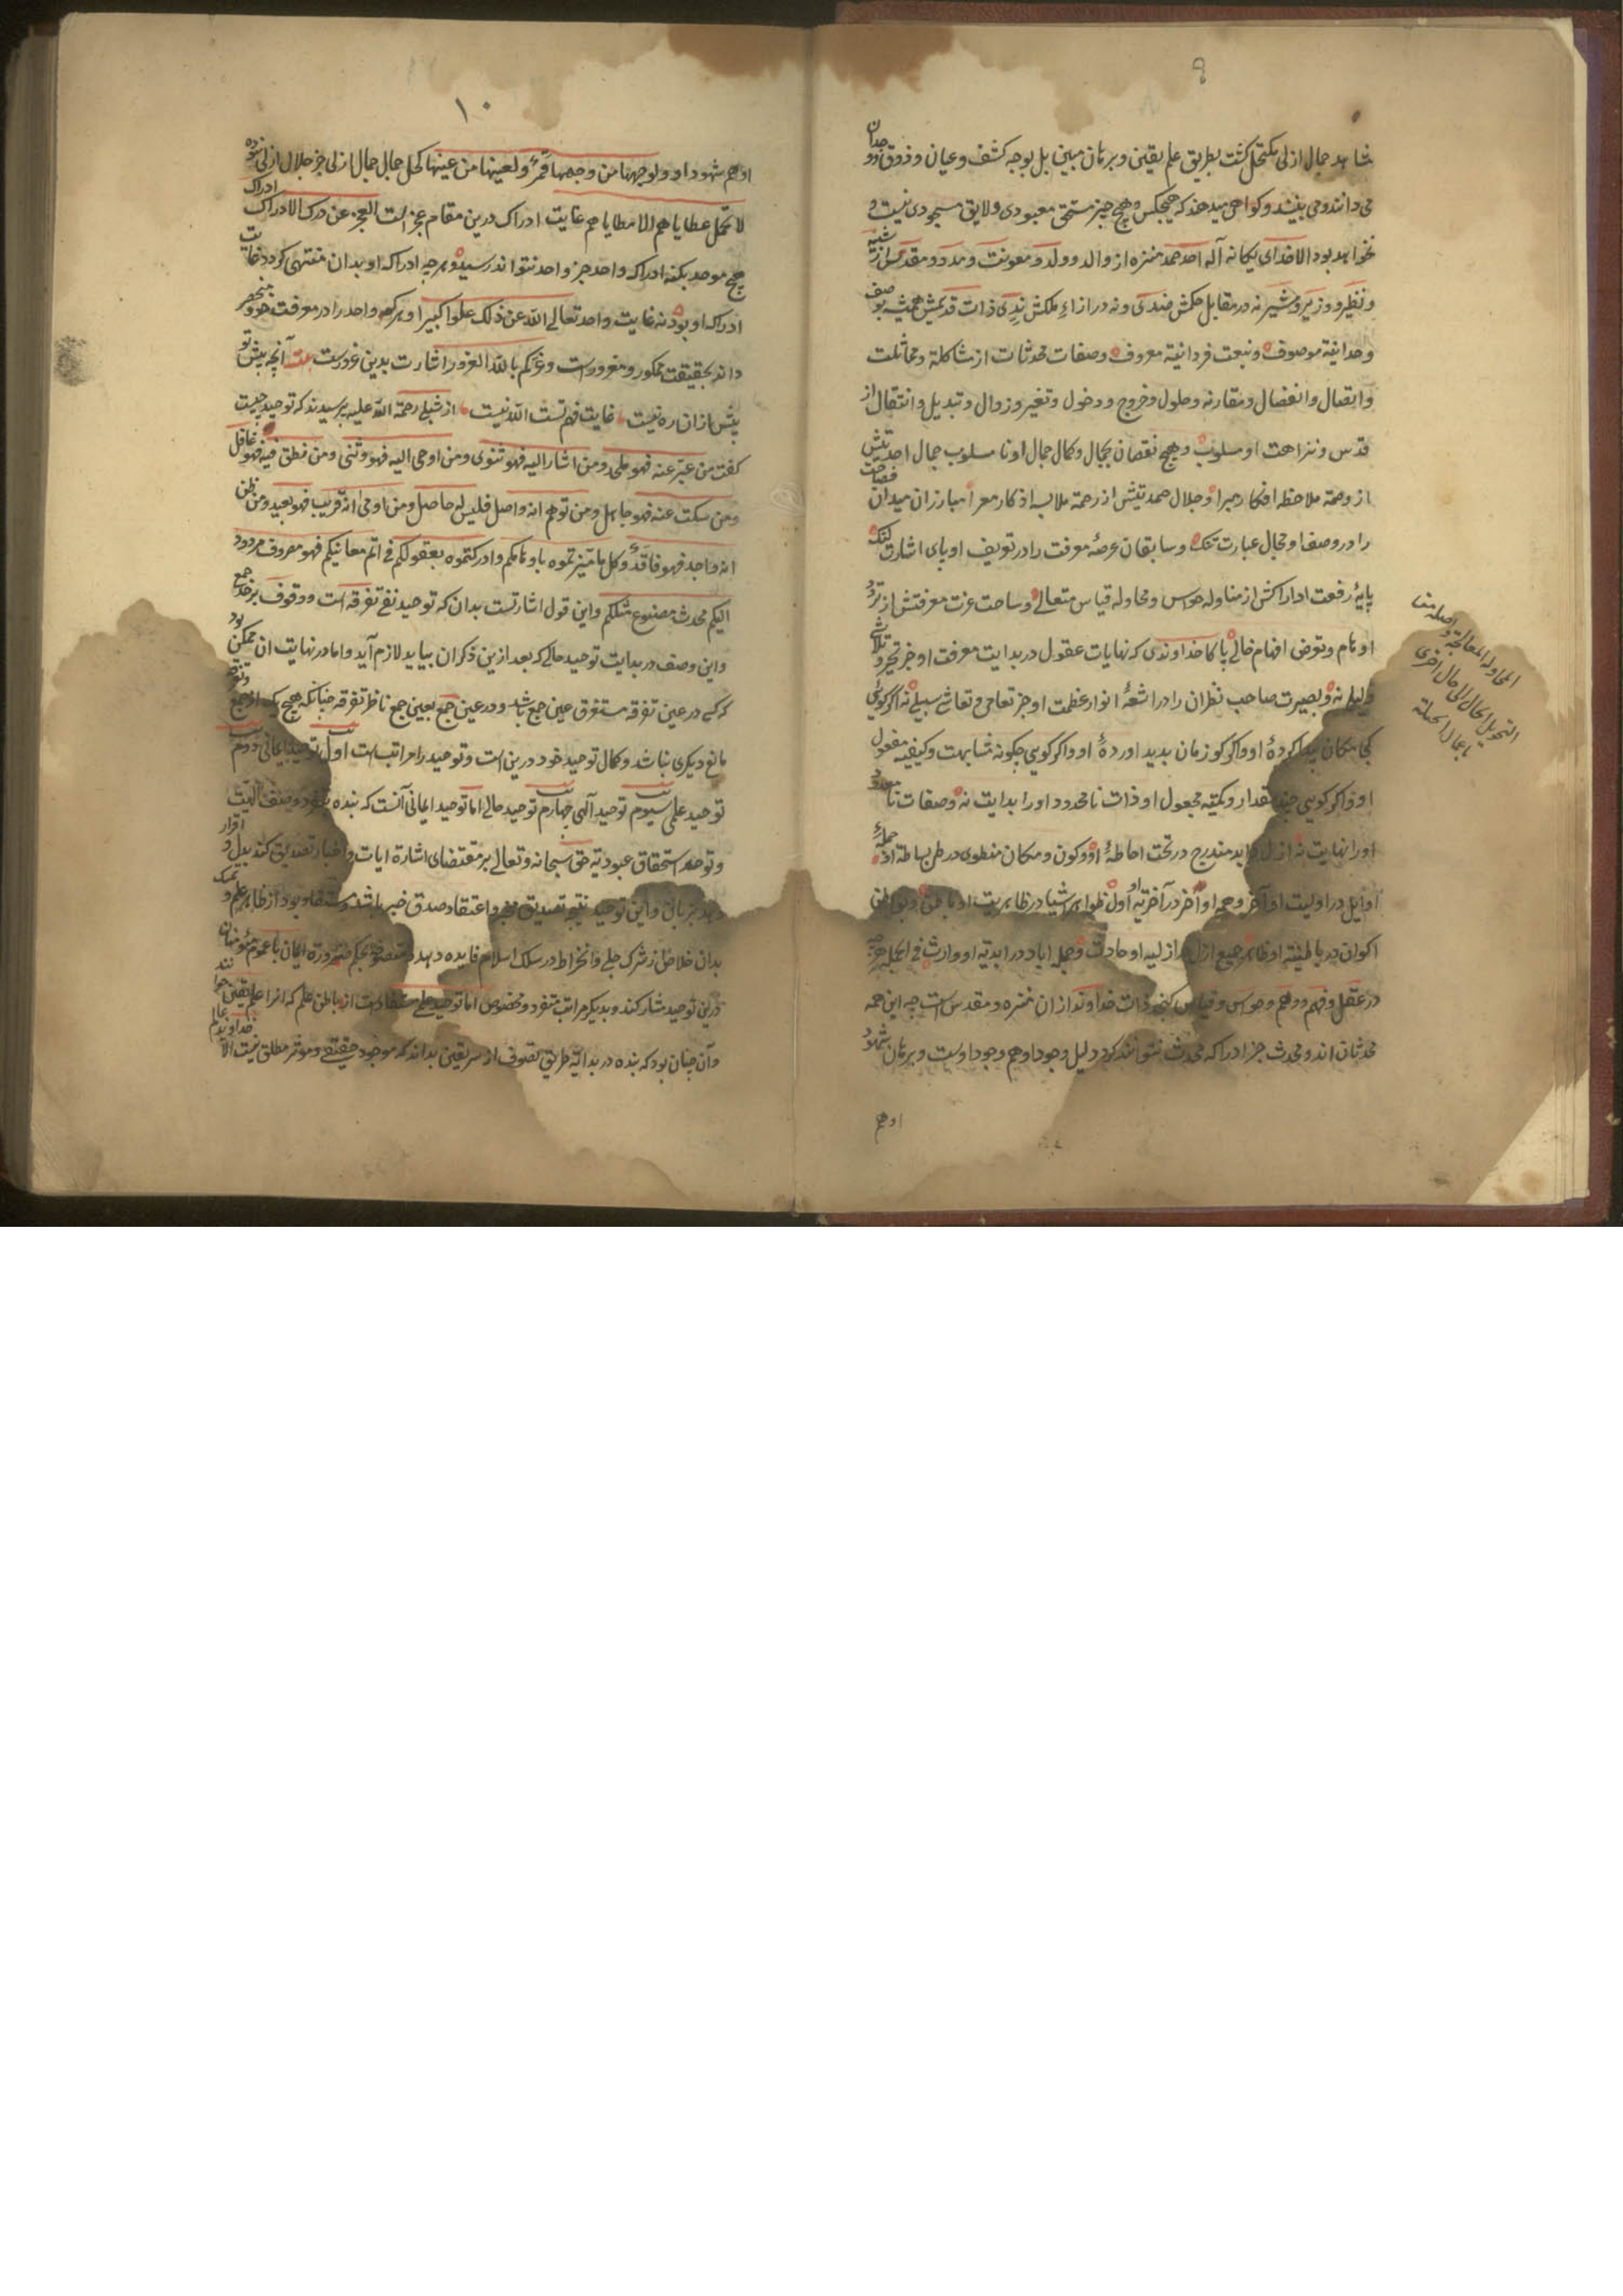 شاهد جمال ازلی مکتحل کشت بطریق علم یقین و برهان مبین بل بوجه کشف و عیان و ذوق و وجدان
می دانند و می بینند و کواهی میدهند که هیچکس و هیچ چیز مستحق معبودی و لایق مسجودی نیست و
نخواهد بود الا خدای یکانه آله احد صمد منزه از والد و ولد و معونت و مدد و مقدس از شبیه
و نظیر و وزیر و مشیر نه در مقابل حکمش ضدی و نه در ازاء ملکش ندی ذات قدیمش همیشه بوصف
وحدانیة موصوف و نبعت فردانیة معروف و صفات محدثات از مشاکلة و مماثلت
و اتصال و انفصال و مقارنه و حلول و خروج و دخول و تغیر و زوال و تبدیل و انتقال از
قدس و نزاهت او مسلوب و هیچ نقصان بجمال و کمال جمال او نا مسلوب جمال احدیتش
از وصمة ملاحظه افکار مبرا و جلال صمدیتش از زحمة ملابسه اذکار معرا مبارزان میدان فصاحت
را در وصف او مجال عبارت تنک و سابقان عرصهٔ معرفت را در تعریف او پای اشارت لنک
پایهٔ رفعت ادراکش از مناوله حواس و محاوله قیاس متعالی و ساحت عزت معرفتش از تردد
اوهام و تعرض افهام خالی پاکا خداوندی که نهایات عقول در بدایت معرفت او جز تحیر و تلاشی
دلیلی نه و بصیرت صاحب نظران را در اشعهٔ انوار عظمت او جز تعامی و تعاشی سبیلی نه اکر کوئی
کجا مکان پیدا کردهٔ او و اکر کو زمان بدید اوردهٔ او و اکر کویی چکونه مشابهت و کیفیه مفعول
او و اکر کویی چند مقدار و کمیته مجعول او ذات نا محدود او را بدایت نه و صفات نا معدود
او را نهایت نه ازل و ابد مندرج در تحت احاطهٔ او و کون و مکان منطوی در طی بساطة او جملهٔ
اوایل در اولیت او آخر و همه اواخر در آخریهٔ او اول ظواهر اشیا در ظاهریت او باطن و بواطن
اکوان در باطنیته او ظاهر جمیع ازل در ازلیه او حادث و جمله اباد در ابدیه او وارث فی الجمله هرچه
در عقل و فهم و وهم و حواس و قیاس کنجد ذات خداوند از ان منزه و مقدس است چه این همه
محدثان اند و محدث جز ادراک محدث نتوانند کرد دلیل وجود او هم وجود اوست و برهان شهود
او هم
المحاولة المعالجة و اصله منا
التحویل الحال الی حال اخری
باعمال الحیلة
۱۰
او هم شهود او و لوجهها من وجهها قمر و لعینها من عینها کحل جمال جمال ازلی جز جلال ازلی نبوده
لا تحمل عطایاهم الا مطایاهم غایت ادراک درین مقام عجز است العجز عن درک الادراک ادراک
هیچ موحد بکنه ادراک واحد جز واحد نتواند رسید و هرچه ادراک او بدان منتهی کردد غایت
ادراک او بود نه غایت واحد تعالی الله عن ذلک علوا کبیرا و هر که واحد را در معرفت خود منحصر
داند بحقیقت ممکور و مغرورست و غرکم بالله الغرور اشارت بدین غرورست آنچه پیش تو
بیش از آن ره نیست غایت فهم تست الله نیست از شبلی رحمة الله علیه پرسیدند که توحید چیست
کفت من عبر عنه فهو ملحد و من اشار الیه فهو ثنوی و من اومی الیه فهو وثنی و من نطق فیه فهو غافل
و من سکت عنه فهو جاهل و من توهم انه واصل فلیس له حاصل و من اومی انه قریب فهو بعید و من ظن
انه واجد فهو فاقد و کل ما میزتموه باوهامکم و ادرکتموه بعقولکم فی اتم معانیکم فهو مصروف مردود
الیکم محدث مصنوع مثلکم و این قول اشارتست بدان که توحید نفی تفرقه است و وقوف بر حد جمع
و این وصف در بدایت توحید حالی که بعد ازین ذکر ان بیاید لازم آید و اما در نهایت ان ممکن بود
که کسی در عین تفرقه مستغرق عین جمع باشد و در عین جمع بعین جمع ناظر تفرقه چنانکه هیچ یک از جمع و تفرقه
مانع دیکری نباشد و کمال توحید خود درین است و توحید را مراتب است اول توحید ایمانی دوم
توحید علمی سیوم توحید آلهی چهارم توحید حالی اما توحید ایمانی آنست که بنده بتفرد وصف الهیت
و توحد استحقاق عبودیة حق سبحانه و تعالی بر مقتضای اشارة ایات و اخبار تصدیق کند بدل و اقرار
دهد بزبان و این توحید نتیجه تصدیق مخبر و اعتقاد صدق خبر باشد و مستفاد بود از ظاهر علم و تمسک
بدان خلاص از شرک جلی و انخراط در سلک اسلام فایده دهد و متصوفه بحکم ضرورة ایمان با عموم مؤمنان
درین توحید مشارکند و بدیکر مراتب متفرد و مخصوص اما توحید علمی مستفادست از باطن علم که انرا علم یقین خوانند
و آن چنان بود که بنده در بدایة طریق تصوف از سر یقین بداند که موجود حقیقی و موثر مطلق نیست الا خداوند عالم